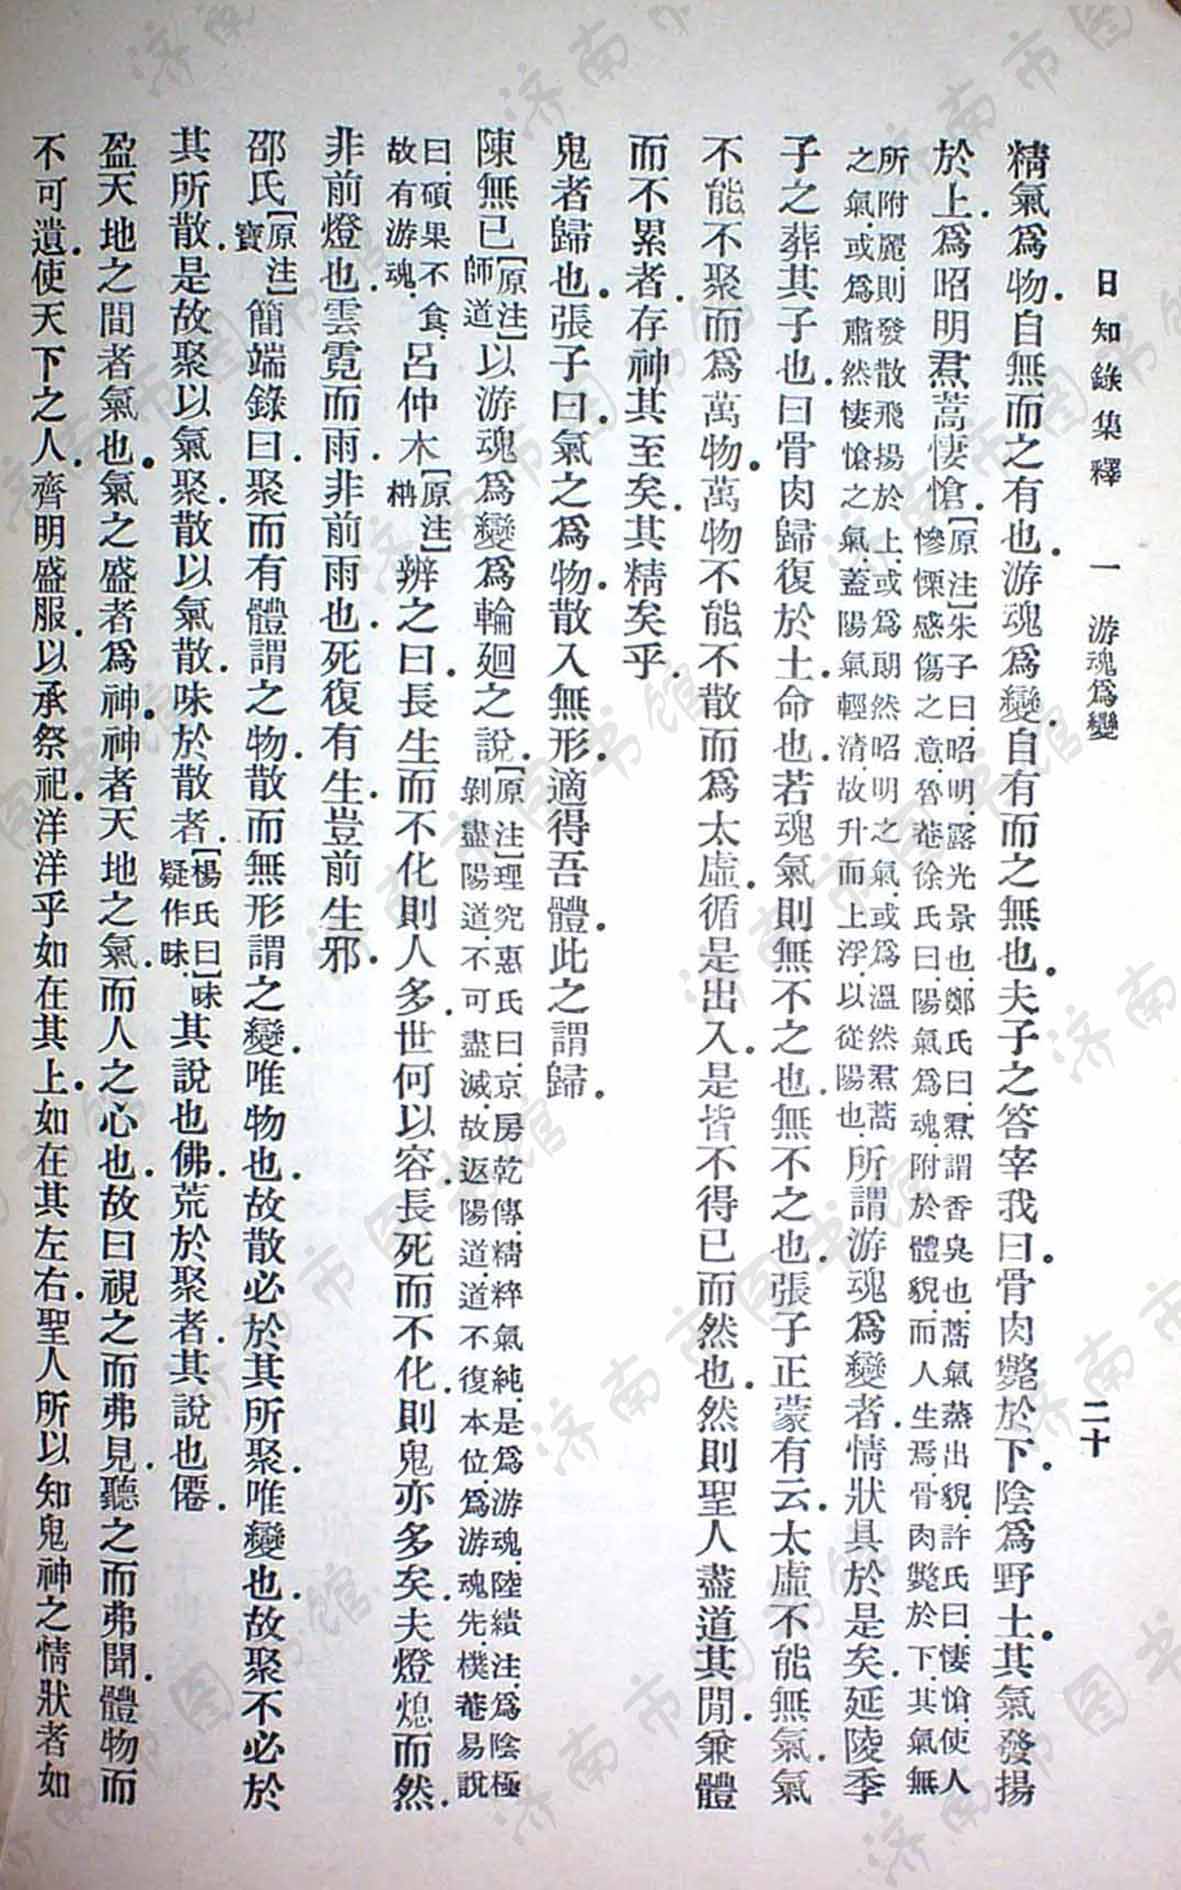 日知錄集釋 一 游魂爲變 二十
精氣爲物.自無而之有也.游魂爲變.自有而之無也.夫子之答宰我曰.骨肉斃於下.陰爲野土.其氣發揚
於上.爲昭明焄蒿悽愴.【原注】朱子曰.昭明.露光景也.鄭氏曰.焄謂香臭也.蒿氣蒸出貌.許氏曰.悽愴.使人慘慄感傷之意.魯菴徐氏曰.陽氣爲魂.附於體貌.而人生焉.骨肉斃於下.其氣無
所附麗.則發散飛揚於上.或爲朗然昭明之氣.或爲溫然焄蒿之氣.或爲肅然悽愴之氣.蓋陽氣輕清.故升而上浮.以從陽也.所謂游魂爲變者.情狀具於是矣.延陵季
子之葬其子也.曰骨肉歸復於土.命也.若魂氣.則無不之也.無不之也.張子正蒙有云.太虛不能無氣.氣
不能不聚而爲萬物.萬物不能不散而爲太虛.循是出入.是皆不得已而然也.然則聖人盡道其閒.兼體
而不累者.存神其至矣.其精矣乎.
鬼者歸也.張子曰.氣之爲物.散入無形.適得吾體.此之謂歸.
陳無已【原注】師道以游魂爲變爲輪廻之說.【原注】理究惠氏曰.京房乾傳.精粹氣純.是爲游魂.陸績注.爲陰極剝盡陽道.不可盡滅.故返陽道.道不復本位.爲游魂先.樸菴易說
曰.碩果不食.故有游魂.呂仲木【原注】柟辨之曰.長生而不化則人多.世何以容.長死而不化.則鬼亦多矣.夫燈熄而然.
非前燈也.雲霓而雨.非前雨也.死復有生.豈前生邪.
邵氏【原注】寶簡端錄曰.聚而有體謂之物.散而無形謂之變.唯物也.故散必於其所聚.唯變也.故聚不必於
其所散.是故聚以氣聚.散以氣散.味於散者.【楊氏曰】味疑作昧.其說也佛.荒於聚者.其說也僊.
盈天地之間者氣也.氣之盛者爲神.神者天地之氣.而人之心也.故曰視之而弗見.聽之而弗聞.體物而
不可遺.使天下之人.齊明盛服.以承祭祀.洋洋乎如在其上.如在其左右.聖人所以知鬼神之情狀者如
济南市图书馆